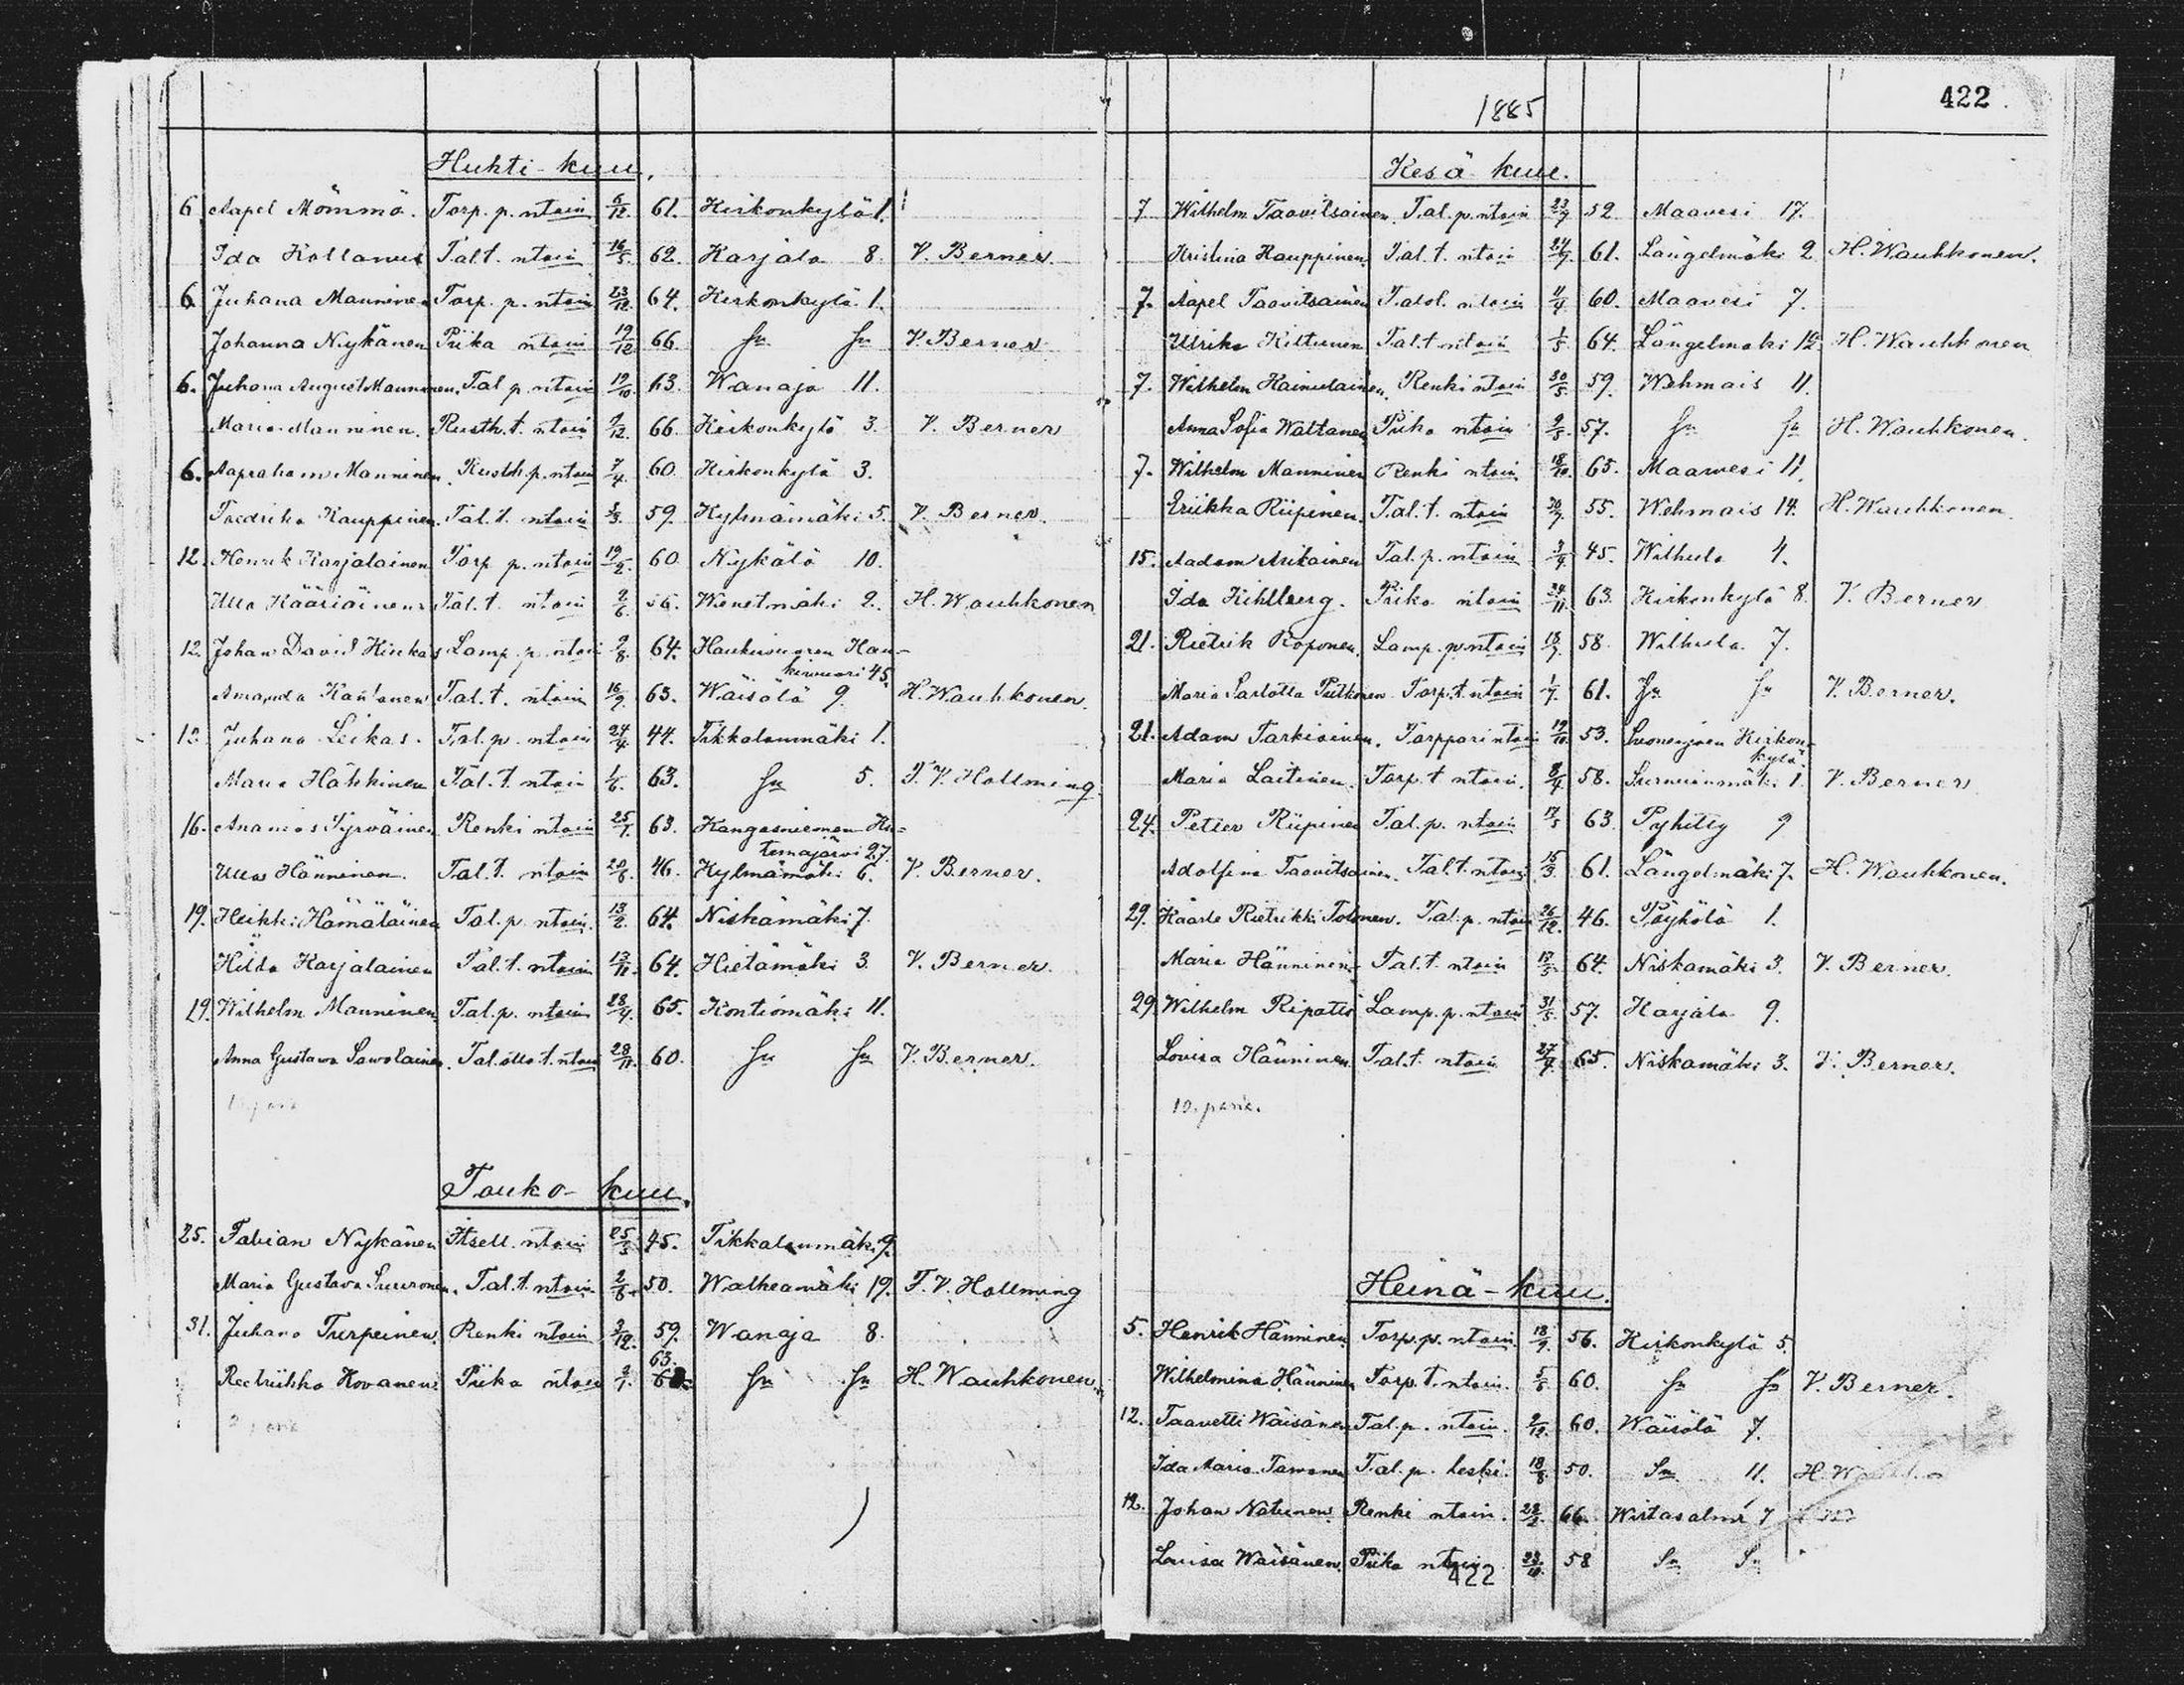 Huhti-kuu.
6 Aapel Mömmö. Torp. p. ntoin 6/12. 61. Kirkonkylä 1.
Ida Kollanus Tal.t. ntoin 16/5. 62. Karjala 8. V. Berner.
6 Juhana Manninen Torp. p. ntoin 23/12. 64. Kirkonkylä 1.
Johanna Nykänen Piika ntoin 19/12 66. Sn Sn V. Berner
6. Juhana August Manninen. Tal p. ntoin 19/10. 63. Wanaja 11.
Maria Manninen. Rusth. t. ntoin 9/12. 66. Kirkonkylä 3. V. Berner
6. Aapraham Manninen. Rusth. p. ntoin 7/4. 60. Kirkonkylä 3.
Fredrika Kauppinen. Tal. t. ntoin 59. Kylmämäki 5. V. Berner.
12. Henrik Karjalainen Torp p. ntoin 19/2. 60 Nykälä 10.
Ulla Kääriäinen Tal. t. ntoin 2/6. 56. Wenetmäki 2. H. Wauhkonen
12. Johan David Hinkas Lamp. p. ntoin 9/8. 64. Haukivuoren Hau-
kivuori 45.
Amanda Tal. t. ntoin 16/9. 63. Wäisälä 9. H. Wauhkonen.
13. Juhana Leikas. Tal. p. ntoin 24/4. 44. Tikkalanmäki 1.
Maria Häkkinen Tal. t. ntoin 1/6. 63. Sn 5. F. V. Hollming
16. Ananias Tyrväinen Renki ntoin 25/1. 63. Kangasniemen Ku-
temajärvi 27.
Ulla Hänninen. Tal. t. ntoin 46. Kylmämäki 6. V. Berner.
19. Heikki Hämäläinen Tal. p. ntoin. 13/2. 64. Niskamäki 7.
Hilda Karjalainen Tal. t. ntoin 13/11. 64. Hietamäki 3. V. Berner.
19. Wilhelm Manninen. Tal. p. ntoin 28/4. 65. Kontiomäki 11.
Anna Gustava Sawolainen. Tal. t. ntoin 28/11. 60. Sn Sn V. Berner.
Touko-kuu.
25. Fabian Nykänen Itsell. ntoin 25/3 45. Tikkalanmäki 9.
Maria Gustava Suuronen. Tal. t. ntoin 2/6. 50. Walkeamäki 19. F. V. Hollming
31. Juhana Turpeinen. Renki ntoin 3/12. 59. Wanaja 8.
63.
Kovanen Piika ntoin Sn Sn H. Wauhkonen.
2 paria
422
1885
Kesä kuu.
7 Wilhelm Taavitsainen. Tal. p. ntoin 23/9 52 Maavesi 17.
Kristina Kauppinen. Tal. t. ntoin 24/9. 61. Längelmäki 2 H. Wauhkonen.
7. Aapel Taavitsainen Talol. ntoin 4/4 60. Maavesi 7.
Ulrika Kittunen Tal. t ntoin 1/5. 64. Längelmäki 12. H. Wauhkonen
7. Wilhelm Kainulainen. Renki ntoin 30/5. 59. Wehmais 11.
Anna Sofia Wattanen Piika ntoin 9/5. 57. Sn Sn H. Wauhkonen.
7. Wilhelm Manninen Renki ntoin 18/10. 65. Maavesi 11.
Eriikka Riipinen. Tal. t. ntoin 55. Wehmais 14. H. Wauhkonen.
15. Aadam Asikainen Tal. p. ntoin 3/9. 45. Wilhula 4.
Ida Kihlberg. Piika ntoin 24/11. 63. Kirkonkylä 8. V. Berner
21. Rietrik Roponen. Lamp. p. ntoin 58. Wilhula 7.
Maria Sarlotta Pulkonen Torp. t. ntoin 1/7. 61. Sn Sn V. Berner.
21. Adam Tarkiainen. Torppari ntoin 19/10. 53. Suonenjoen Kirkon-
kylä.
Maria Laitinen. Torp. t ntoin. 8/4 58. Surnuinmäki 1. V. Berner.
24. Petter Riipinen Tal. p. ntoin 17/5 63. Pyhitty 9
Adolfina Taavitsainen. Tal. t. ntoin 15/3. 61. Längelmäki 7. H. Wauhkonen.
29. Kaarle Rietrikki Tolonen. Tal. p. ntoin 26/12. 46. Pöyhölä 1.
Maria Hänninen Tal. t. ntoin 64. Niskamäki 3. V. Berner.
29 Wilhelm Ripatti Lamp. p. ntoin 31/5. 57. Harjala 9.
Lovisa Hänninen Tal. t. ntoin 27/9. 65. Niskamäki 3. V. Berner.
10. paria.
Heinä-kuu.
5. Henrik Hänninen Torp. p. ntoin. 18/9. 56. Kirkonkylä 5.
Wilhelmina Hänninen Torp. t. ntoin. 5/6 60. Sn Sn V. Berner.
12. Taavetti Wäisänen Tal. p. ntoin. 2/12. 60. Wäisälä 7.
Ida Maria Tal. p. leski. 18/8. 50. Sn 11. H. W
12. Johan Natunen Renki ntoin. 66. Wirtasalmi 7
Lovisa Wäisänen. Piika ntoin 58 Sn Sn
422